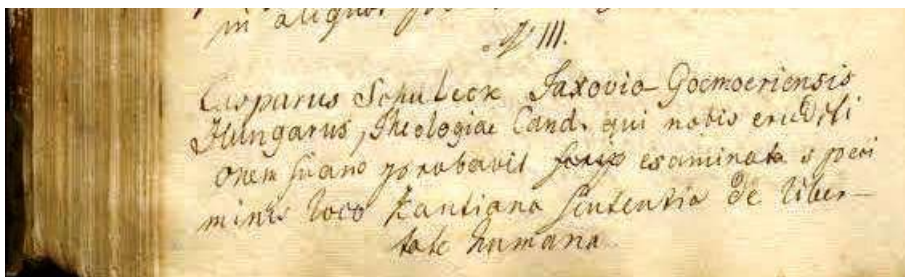 in aliquot
N III.
Casparus Schuleck Jaxovia Goemoeriensis
Hungarus, Theologiae Cand. qui nobis eruditi
onem suam probavit examinata speci
minis loco Kantiana sententia de liber-
tate humana